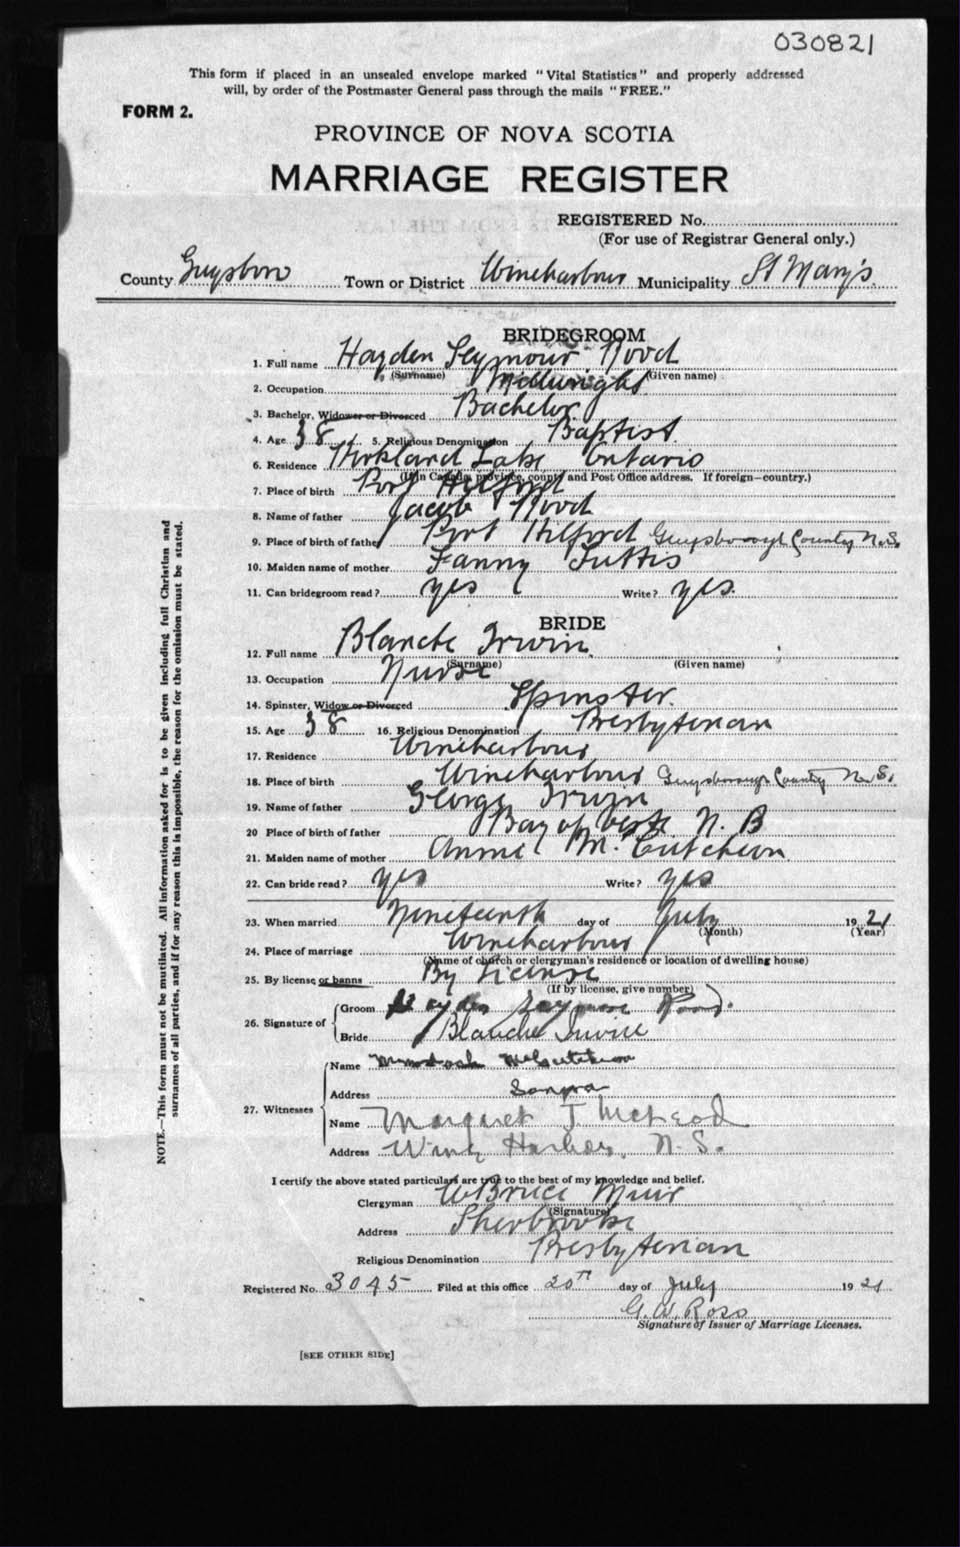 030821
This form if placed in an unsealed envelope marked "Vital Statistics" and properly addressed
will, by order of the Postmaster General pass through the mails "FREE."
FORM 2.
PROVINCE OF NOVA SCOTIA
MARRIAGE REGISTER
REGISTERED No.
(For use of Registrar General only.)
County Guysboro Town or District Wineharbour Municipality St Mary's
BRIDEGROOM
1. Full name Hayden Seymour Rood
(Surname) (Given name)
2. Occupation Millwright
3. Bachelor, Widower or Divorced Bachelor
4. Age 38 5. Religious Denomination Baptist
6. Residence Kirkland Lake Ontario
(If in Canada, province, county and Post Office address. If foreign—country.)
7. Place of birth Port Hilford
8. Name of father Jacob Rood
9. Place of birth of father Port Hilford Guysborough County N.S.
10. Maiden name of mother Fanny
11. Can bridegroom read? yes Write? yes.
BRIDE
12. Full name Blanche Irwin
(Surname) (Given name)
13. Occupation Nurse
14. Spinster, Widow or Divorced Spinster.
15. Age 38 16. Religious Denomination Presbyterian
17. Residence Wineharbour
18. Place of birth Wineharbour Guysborough County N.S.
19. Name of father George Irwin
20 Place of birth of father Bay of Verte N. B
21. Maiden name of mother Annie McCutcheon
22. Can bride read? yes Write? yes
23. When married Nineteenth day of July 1921
(Month) (Year)
24. Place of marriage Wineharbour
(Name of church or clergyman's residence or location of dwelling house)
25. By license or banns By License
(If by license, give number)
26. Signature of
Groom Hayden Seymour Rood.
Bride Blanche Irwin
27. Witnesses
Name McCutcheon
Address Sonora
Name Margaret J. McLeod
Address Wine Harbor, N. S.
I certify the above stated particulars are true to the best of my knowledge and belief.
Clergyman W Bruce Muir
(Signature)
Address Sherbrooke
Religious Denomination Presbyterian
Registered No. 3045 Filed at this office 20th day of July 1921
G. W. Ross
Signature of Issuer of Marriage Licenses.
[SEE OTHER SIDE]
NOTE.—This form must not be mutilated. All information asked for is to be given including full Christian and
surnames of all parties, and if for any reason this is impossible, the reason for the omission must be stated.